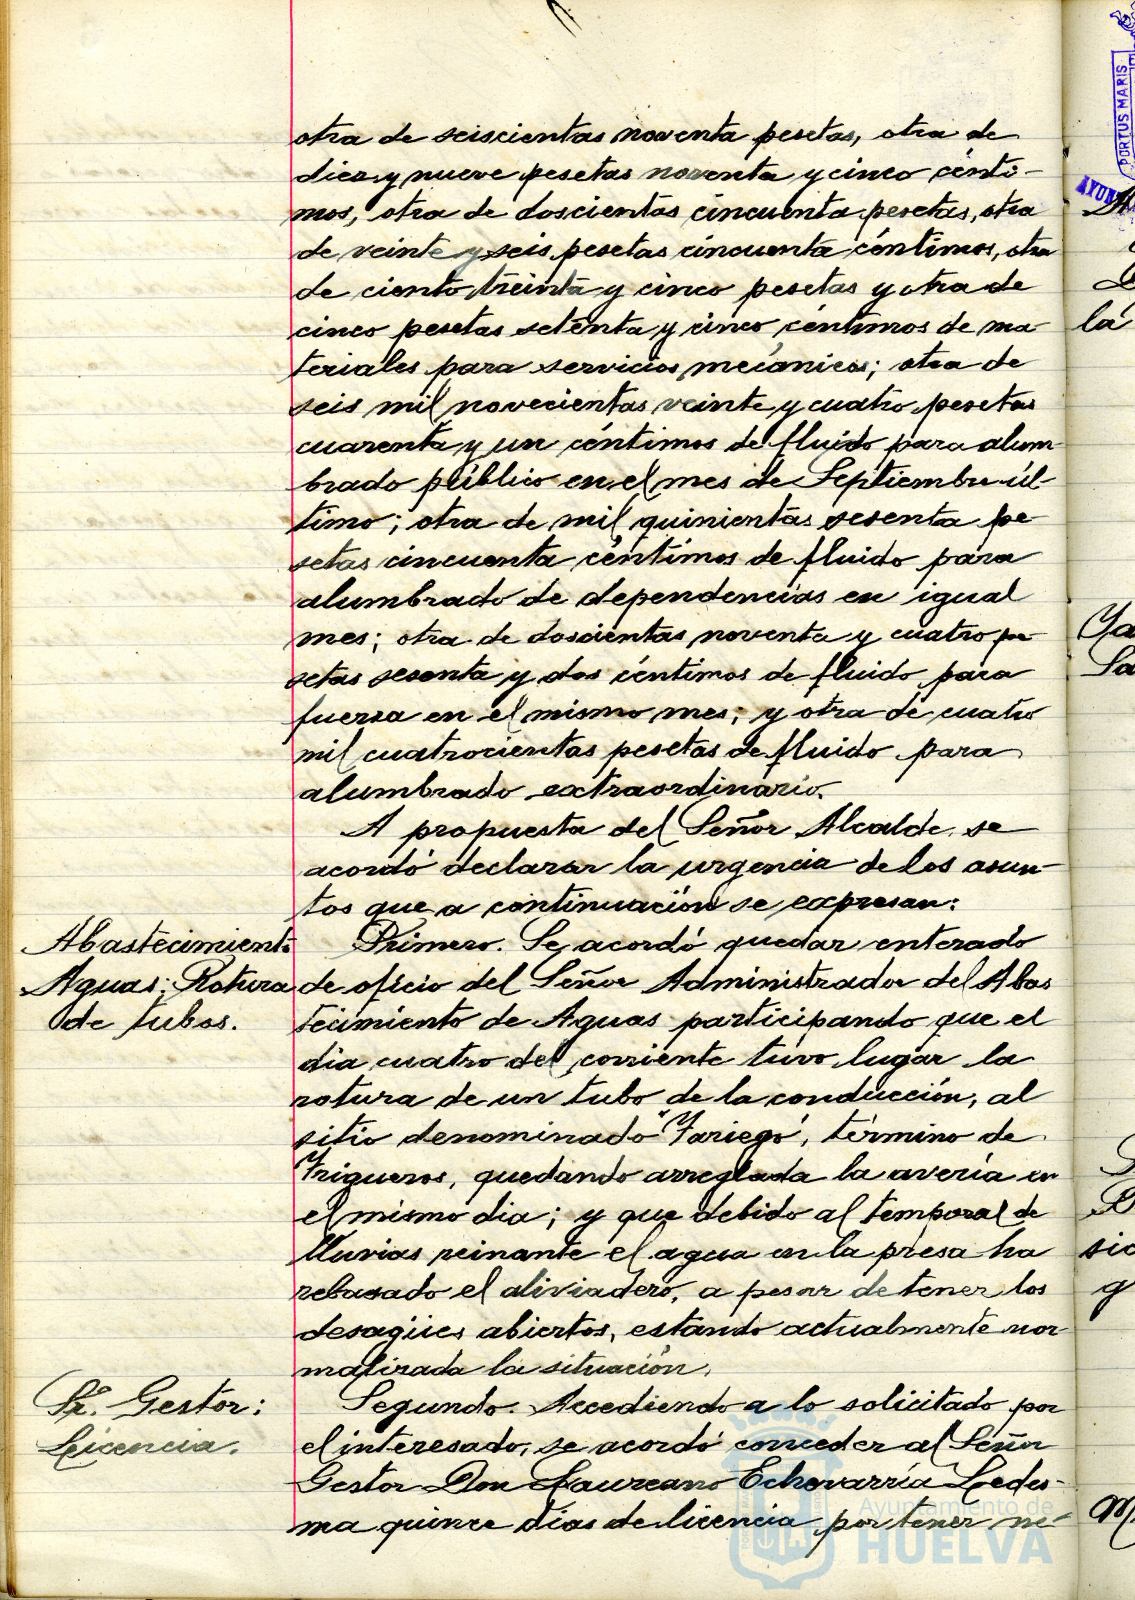 otra de seiscientas noventa pesetas, otra de
diez y nueve pesetas noventa y cinco cénti-
mos, otra de doscientas cincuenta pesetas, otra
de veinte y seis pesetas cincuenta céntimos, otra
de ciento treinta y cinco pesetas y otra de
cinco pesetas setenta y cinco céntimos de ma
teriales para servicios mecánicos; otra de
seis mil novecientas veinte y cuatro pesetas
cuarenta y un céntimos de fluido para alum
brado público en el mes de Septiembre úl-
timo; otra de mil quinientas sesenta pe
setas cincuenta céntimos de fluido para
alumbrado de dependencias en igual
mes; otra de doscientas noventa y cuatro pe
setas sesenta y dos céntimos de fluido para
fuerza en el mismo mes; y otra de cuatro
mil cuatrocientas pesetas de fluido para
alumbrado extraordinario.
A propuesta del Señor Alcalde, se
acordó declarar la urgencia de los asun-
tos que a continuación se expresan:
Abastecimiento
Aguas: Rotura
de tubos.
Primero. Se acordó quedar enterado
de oficio del Señor Administrador del Abas
tecimiento de Aguas participando que el
dia cuatro del corriente tuvo lugar la
rotura de un tubo de la conducción, al
sitio denominado "Fariego", término de
Trigueros, quedando arreglada la avería en
el mismo dia; y que debido al temporal de
lluvias reinante el agua en la presa ha
rebasado el aliviadero, a pesar de tener los
desagües abiertos, estando actualmente nor
malizada la situación.
Sr. Gestor:
Licencia.
Segundo. Accediendo a lo solicitado por
el interesado, se acordó conceder al Señor
Gestor Don Laureano Echevarría Ledes-
ma quince días de licencia por tener ne-
PORTUS MARIS
la
Ayuntamiento de
HUELVA